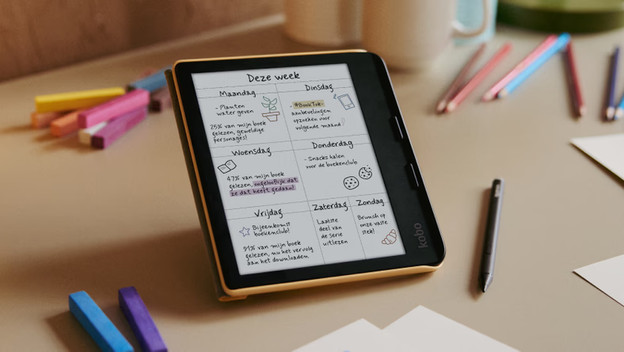 Deze week
Maandag
- Planten
water geven
25% van mijn boek
gelezen, geweldige
personages!
Dinsdag
- #BookTok-
aanbevelingen
opzoeken voor
volgende maand
Woensdag
47% van mijn boek
gelezen, ongelooflijk dat
ze dat heeft gedaan!
Donderdag
- Snacks halen
voor de boekenclub
Vrijdag
Bijeenkomst
boekenclub!
91% van mijn boek
gelezen, nu het vervolg
aan het downloaden
Zaterdag
Laatste
deel van
de serie
uitlezen
Zondag
Brunch op
onze vaste
stek!
kobo